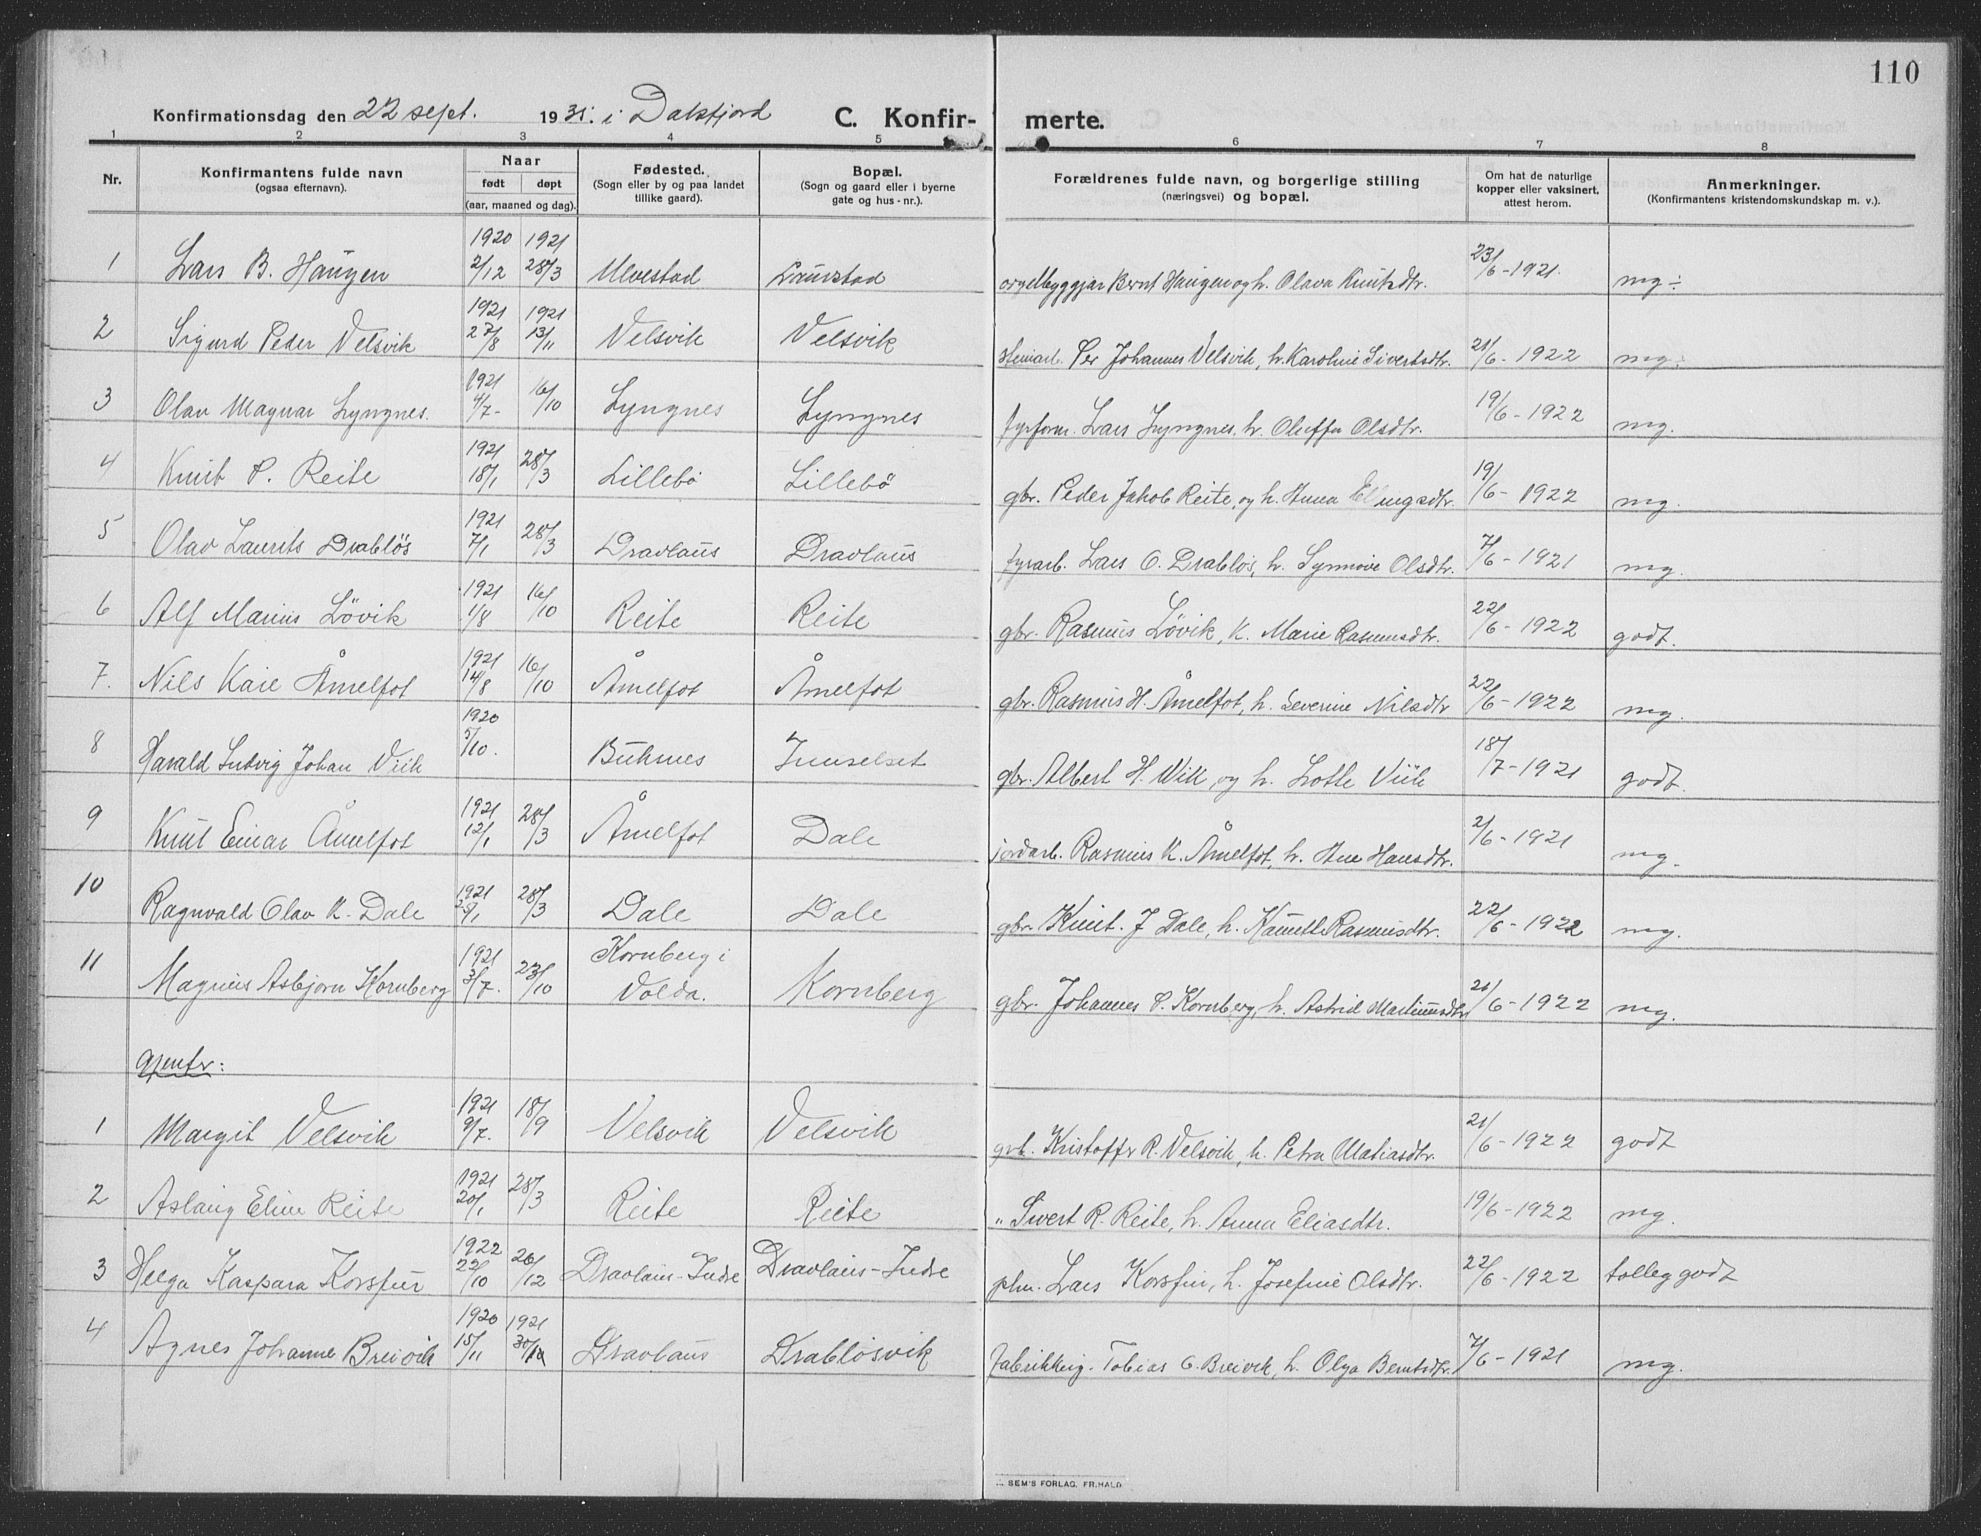 110
Konfirmationsdag den 22 sept. 1935. i Dalsfjord C. Konfirmerte.
1 2 3 4 5 6 7 8
Nr. Konfirmantens fulde navn (ogsaa efternavn). Naar født døpt (aar, maaned og dag). Fødested. (Sogn eller by og paa landet tillike gaard). Bopæl. (Sogn og gaard eller i byerne gate og hus-nr.). Forældrenes fulde navn, og borgerlige stilling (næringsvei) og bopæl. Om hat de naturlige kopper eller vaksinert, attest herom. Anmerkninger. (Konfirmantens kristendomskundskap m. v.).
1 Lars B. Haugen 1920 2/12 1921 28/3 Ulvestad Laurstad orgelbyggjar Bernt Haugen og h. Olava Knutsdtr. 23/6-1921. mg÷
2 Sigurd Peder Velsvik 1921 27/8 1921 13/11 Velsvik Velsvik steinarb. Per Johannes Velsvik, h. Karoline Sivertsdtr. 21/6-1922 mg÷
3 Olav Magnar Lyngnes. 1921 4/7- 16/10 Lyngnes Lyngnes fyrform. Lars Lyngnes. h. Oluffa Olsdtr. 19/6-1922 mg.
4 Knut P. Reite 1921 18/1 28/3 Lillebø Lillebø gbr. Peder Jakob Reite, og h. Anna Elingsdtr. 19/6-1922 mg.
5 Olav Laurits Drabløs 1921 7/1 28/3 Dravlaus Dravlaus fyrarb. Lars O. Drabløs, h. Synnøve Olsdtr. 7/6-1921 mg.
6 Alf Marius Løvik 1921 1/8 16/10 Reite Reite gbr. Rasmus Løvik, k. Marie Rasmusdtr. 22/6-1922 godt.
7. Nils Kåre Åmelfot 1921 14/8 16/10 Åmelfot Åmelfot gbr. Rasmus H. Åmelfot, h. Severine Nilsdtr 22/6-1922 mg.
8 Harald Ludvig Johan Viik 1920 5/10. Buknes Innselset gbr. Albert H. Wik, og h. Lotte Viik 18/7-1921 godt.
9 Knut Einar Åmelfot 1921 12/1 28/3 Åmelfot Dale jordarb. Rasmus K. Åmelfot, h. Ane Hansdtr. 2/6-1921 mg.
10 Ragnvald Olav K. Dale 1921 25/1 28/3 Dale Dale gbr. Knut. J Dale, h. Rasmusdtr. 22/6-1922 mg.
11 Magnus Asbjørn Kornberg 1921 3/7. 23/10 Kornberg i Volda. Kornberg gbr. Johannes P. Kornberg, h. Astrid Martinusdtr 21/6-1922 mg.
Gjentr:
1 Margit Velsvik 1921 9/7. 18/9 Velsvik Velsvik gbr. Kristoffer R. Velsvik, h. Petra Matiasdtr. 21/6-1922 godt
2 Aslaug Eline Reite 1921 20/1 28/3 Reite Reite " Sivert R. Reite, h. Anna Eliasdtr. 19/6-1922 mg.
3 Helga Kaspara Korsfur 1922 22/10 26/12 Dravlaus-Indre Dravlaus-Indre plm. Lars Korsfur, h. Josefine Olsdtr. 22/6-1922 tolleg godt
4 Agnes Johanne Breivik 1920 15/11 1921 30/10 Dravlaus Drabløsvik fabrikkeig. Tobias G. Breivik, h. Olga Berntsdtr. 7/6-1921 mg.
SEM'S FORLAG, FR.HALD